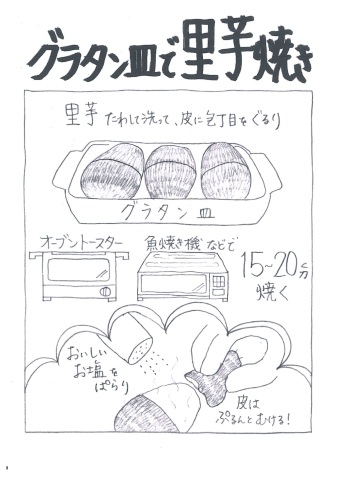 グラタン皿で里芋焼き
里芋 たわしで洗って、皮に包丁目をぐるり
グラタン皿
オーブントースター
魚焼き機などで
15〜20分
焼く
おいしい
お塩を
ぱらり
皮は
ぷるんとむける!